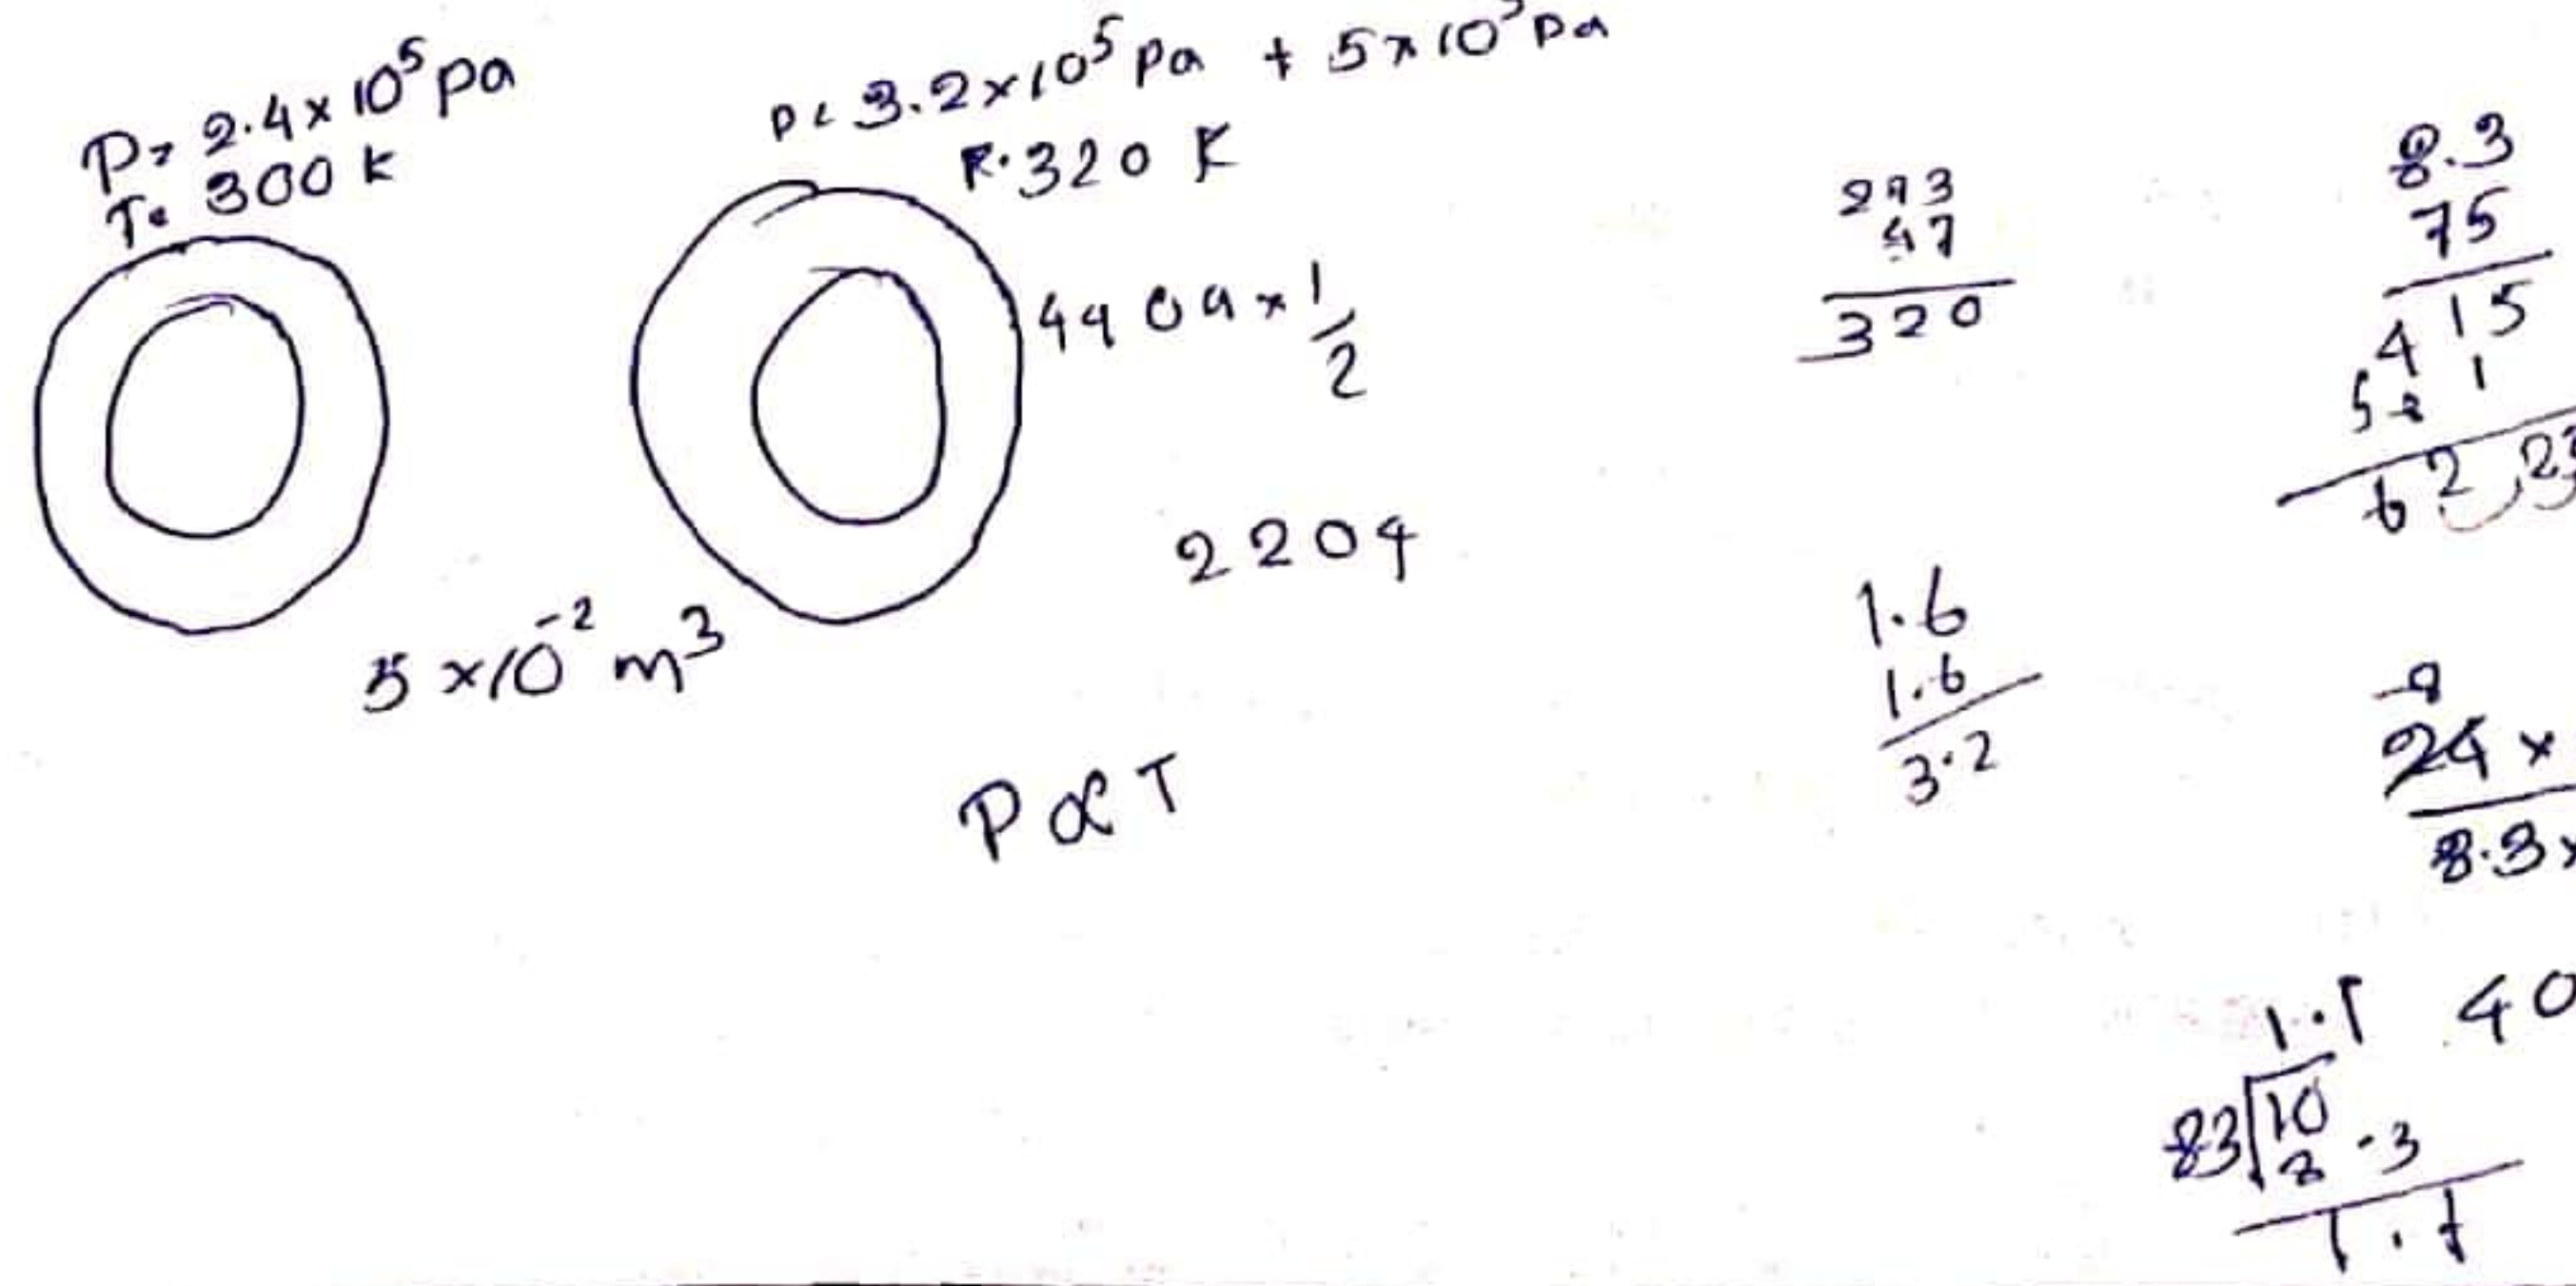 P= 2.4×10⁵ pa
T= 300 k
P= 3.2×10⁵ pa + 5×10⁵ pa
320 K
4404 × 1/2
2204
5×10⁻² m³
P ∝ T
47
320
1.6
1.6
3.2
8.3
75
415
24 ×
8.3×
1.1 40
83 10
8.3
1.1